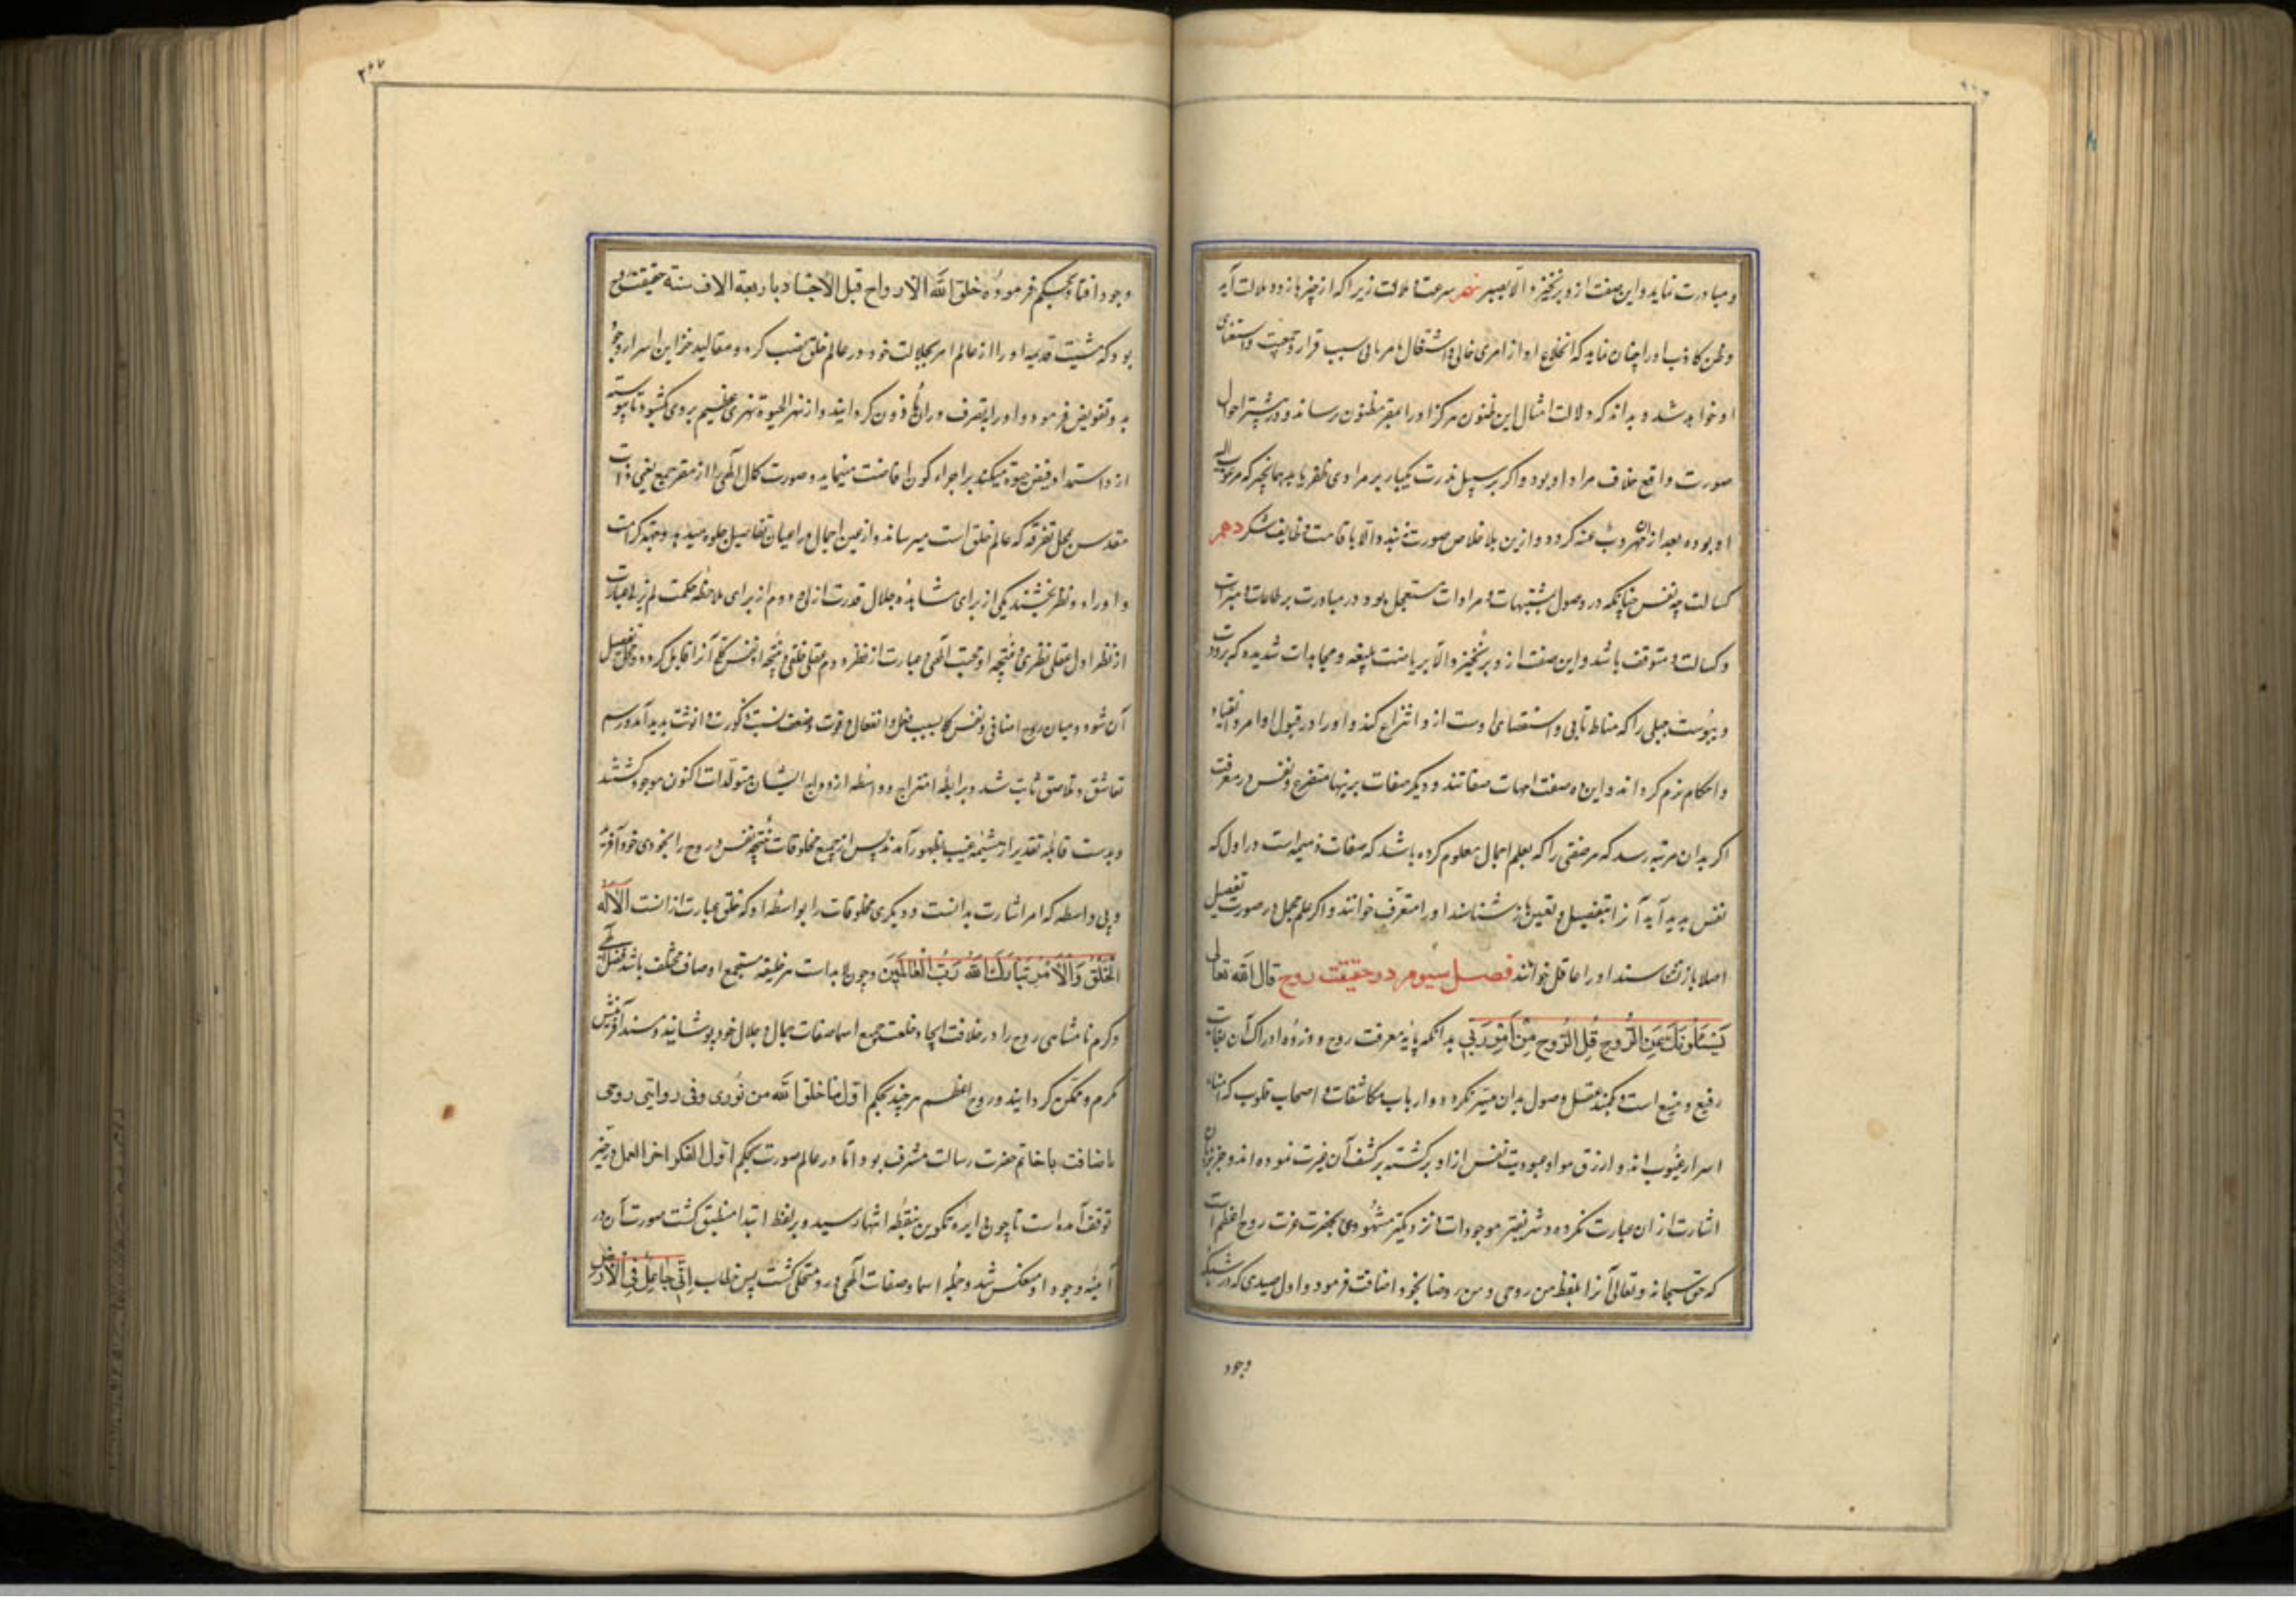 و مبادرت نماید و این صفت ازو برنخیزد الا بصبر نهم سرعت ملالت زیرا که از چیزها زود ملالت آید
و ظن کاذب او را چنان نماید که انخلاع او از امری حالی و اشتغال بامر ثانی سبب قرار و جمعیت و استغنای
او خواهد شد و نداند که دلالت امثال این ظنون هرگز او را بمقر مظنون نرساند و در بیشتر احوال
صورت واقع خلاف مراد او بود و اگر بر سبیل ندرت یکبار بر مرادی ظفر یابد همانچیز که مرغوب الیه
او بوده بعد از آن مهروب عنه گردد و ازین بلا خلاص صورت نبندد الا باقامت وظایف شکر دهم
کسالت چه نفس چنانکه در وصول بمشتهیات و مرادات مستعجل بود در مبادرت بر طاعات و مبرات
و کسالت و متوقف باشد و این صفت ازو برنخیزد الا بریاضت بلیغه و مجاهدات شدیده که برودت
و یبوست جبلی را که مناط تابی و استعصای اوست ازو انتزاع کند و او را در قبول اوامر و انقیاد
و احکام نرم گرداند و این ده صفت امهات صفاتند و دیگر صفات برینها متفرع و نفس در معرفت
اگر بدان مرتبه رسد که هر صفتی را که بعلم اجمال معلوم کرده باشد که صفات ذمیمه است در اول که
نفس پدید آید آنرا بتفصیل و تعیین باز شناسد او را متعرف خوانند و اگر علم مجمل در صورت تفصیل
اصلا باز نشناسد او را غافل خوانند فصل سیوم در حقیقت روح قال الله تعالی
یسئلونک عن الروح قل الروح من امر ربی بدانکه پایه معرفت روح و ذروه ادراک آن بغایت
رفیع و منیع است بکمند عقل وصول بدان میسر نگردد و ارباب مکاشفات و اصحاب قلوب که امناء
اسرار غیوب اند و از رق هوا و عبودیت نفس آزاد گشته بر کشف آن غیرت نموده اند و جز بزبان
اشارت از ان عبارت نکرده و شریفتر موجودات و نزدیکتر مشهودی بحضرت عزت روح اعظم است
که حق سبحانه و تعالی آنرا بلفظ من روحی و من روحنا بخود اضافت فرمود و اول صیدی که در شبکه
وجود
وجود افتاد و بحکم فرموده خلق الله الارواح قبل الاجساد باربعة الاف سنة حقیقت روح
بود که مشیت قدیمه او را از عالم امر بخلافت خود در عالم خلق نصب کرد و مقالید خزاین اسرار وجود
بدو تفویض فرمود و او را بتصرف در ان ماذون گردانید و از نهر الحیوة نهری عظیم بروی گشود تا پیوسته
ازو استمداد فیض حیوة میکند بر اجزاء کون افاضت مینماید و صورت کمال الهی را از مقر جمع یعنی ذات
مقدس بمحل تفرقه که عالم خلق است میرساند و از عین اجمال در اعیان تفاصیل جلوه میدهد و بجهة کرامت
و او را دو نظر بخشیدند یکی از برای مشاهده جلال قدرت ازلی دوم از برای ملاحظه حکمت لم یزلی عبارت
از نظر اول عقلی نظری و نتیجه او محبت الهی و عبارت از نظر دوم عقلی خلقی و نتیجه او نفس کلی
آن شود و میان روح اضافی و نفس کلی بسبب فعل و انفعال و قوت و ضعف نسبت ذکورت و انوثت پدید آمد و رسم
تعاشق و تعانق ثابت شد و برابطه امتزاج و واسطه ازدواج ایشان متولدات اکنون موجود گشتند
و بدست قابله تقدیر از مشیمه غیب بظهور آمدند پس از جمیع مخلوقات نتیجه نفس و روح را بخودی خود آفرید
و بی واسطه که امر اشارت بدانست و دیگری مخلوقات را بواسطه او که خلق عبارت از انست الا له
الخلق والامر تبارک الله رب العالمین و چون لابدست هر خلیفه مستجمع اوصاف مختلف باشد فضل الهی
و کرم نامتناهی روح را در خلافت ایجاد خلعت جمیع اسما صفات جمال و جلال خود پوشانید و مسند آفرینش
مکرم و ممکن گردانید و روح اعظم هر چند بحکم اول ما خلق الله من نوری و فی روایتی روحی
باضافت با خاتم حضرت رسالت مشرف بود اما در عالم صورت بحکم اول الفکر اخر العمل در حیز
توقف آمده است تا چون دایره تکوین بنقطه انتها رسید و بر لفظ ابتدا منطبق گشت صورت آن در
آینه وجود او منعکس شد و جمله اسما و صفات الهی درو متجلی گشت پس خطاب انی جاعل فی الارض